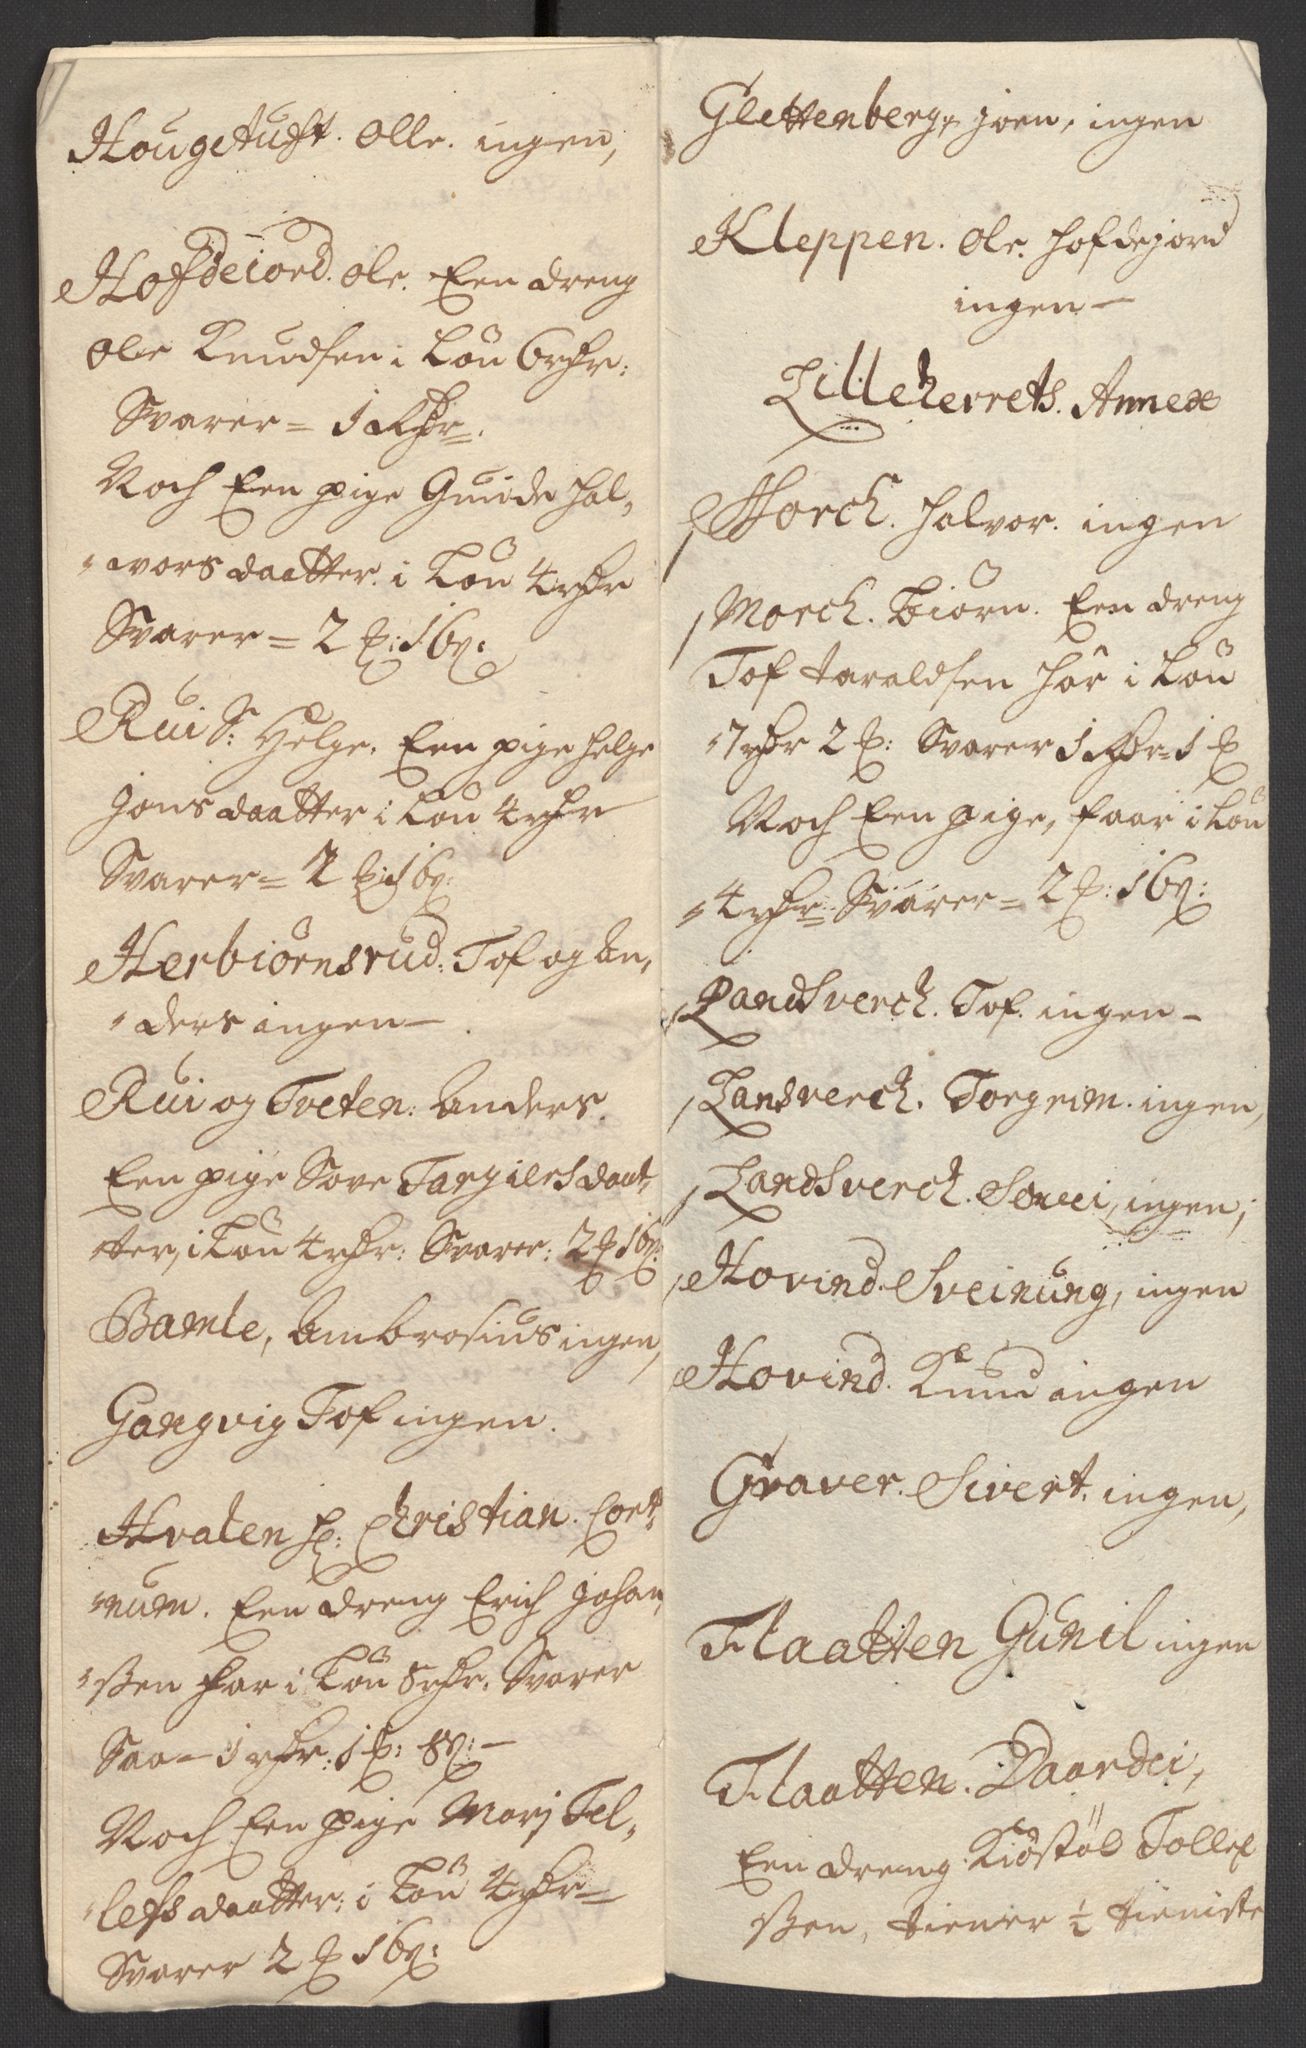 Hougetufft. Olle. ingen,
Hofdeiord. Ole. Een dreng
Ole Knudsen i Lön 6 rdr:
Svarer = 1 Rdr.
Noch Een pige Gunde Hal,
vors daatter. i Lön 4 rdr
Svarer = 2 ₻: 16 β:
Rui S: Helge. Een pige Helge
Jons daatter i Lön 4 rdr
Svarer = 2 ₻: 16 β:
Herbiörnsrud. Tof og An,
ders ingen —
Rui og Tveten: Anders.
Een pige Sove Targiersdaat,
ter, i Lön 4 rdr: Svarer: 2 ₻ 16 β:
Bamle, Ambrosius ingen,
Gangvig Tof ingen.
Hvalen Hr: Christian. Cort,
num. Een dreng Erich Johan,
ßen har i Lön 8 rdr. Svarer
Saa — 1 rdr: 1 ₻: 8 β: —
Noch Een pige Marj Tel,
lefs daatter: i Lön 4 rdr —
Svarer 2 ₻ 16 β:
Glettenberg, Joen, ingen
Kleppen. Ole. Hofdejord
ingen —
Lilleherrets. Annex
Morch. Halvor. ingen
Morch. Biörn. Een dreng
Tof taraldsen har i Lön
7 rdr 2 ₻: Svarer 1 Rdr = 1 ₻
Noch Een pige, faar i Lön
4 rdr. Svarer = 2 ₻: 16 β:
Landsverch. Tof. ingen —
Lansverch. Torgrim. ingen,
Landsverch. ingen;
Hovind. Sveinung, ingen
Hovind. Knud ingen
Graver. Sivert. ingen,
Flaatten Gunil ingen
Flaatten. Daardei,
Een dreng Kiöstöl Tollef
ßen, tiener ½ tieniste